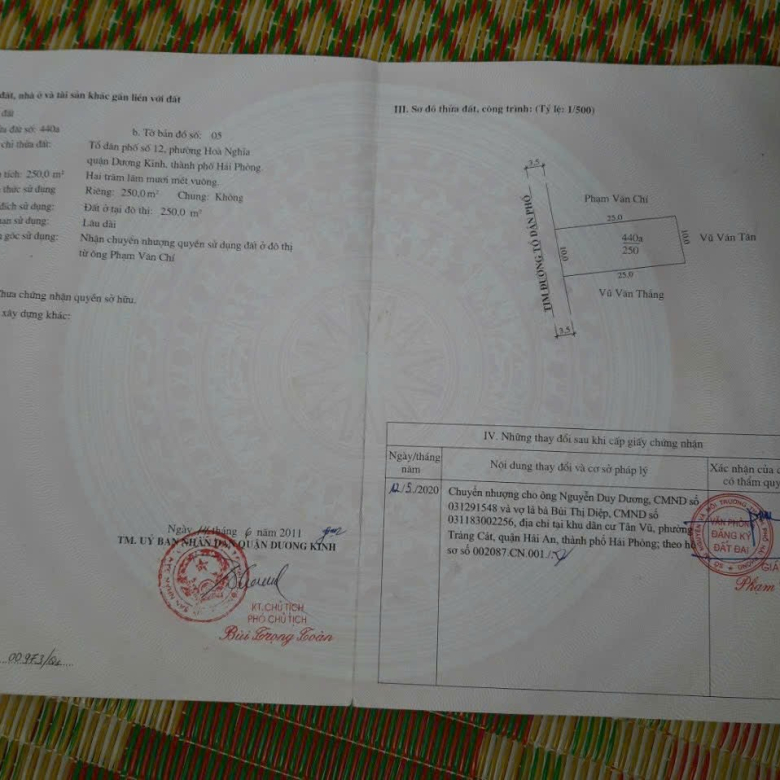 đất, nhà ở và tài sản khác gắn liền với đất
đất
đất số: 440a
b. Tờ bản đồ số: 05
chỉ thửa đất:
Tổ dân phố số 12, phường Hoà Nghĩa
quận Dương Kinh, thành phố Hải Phòng
tích: 250,0 m²
Hai trăm lăm mươi mét vuông.
thức sử dụng
Riêng: 250,0 m² Chung: Không
đích sử dụng:
Đất ở tại đô thị: 250.0 m²
sử dụng:
Lâu dài
gốc sử dụng:
Nhận chuyển nhượng quyền sử dụng đất ở đô thị
từ ông Phạm Văn Chí
Chưa chứng nhận quyền sở hữu.
xây dựng khác:
Ngày 14 tháng 6 năm 2011
TM. UỶ BAN NHÂN DÂN QUẬN DƯƠNG KINH
KT.CHỦ TỊCH
PHÓ CHỦ TỊCH
Bùi Trọng Toàn
III. Sơ đồ thửa đất, công trình: (Tỷ lệ: 1/500)
3,5
TIM ĐƯỜNG TỔ DÂN PHỐ
Phạm Văn Chí
25.0
10,0
440a
250
10.0
Vũ Văn Tân
25.0
Vũ Văn Thắng
3,5
IV. Những thay đổi sau khi cấp giấy chứng nhận
Ngày/tháng
năm
Nội dung thay đổi và cơ sở pháp lý
Xác nhận của
có thẩm quy
12/5/2020
Chuyển nhượng cho ông Nguyễn Duy Dương, CMND số
031291548 và vợ là bà Bùi Thị Diệp, CMND số
031183002256, địa chỉ tại khu dân cư Tân Vũ, phường
Tràng Cát, quận Hải An, thành phố Hải Phòng; theo hồ
sơ số 002087.CN.001
VĂN PHÒNG
ĐĂNG KÝ
ĐẤT ĐAI
GIÁ
Phạm